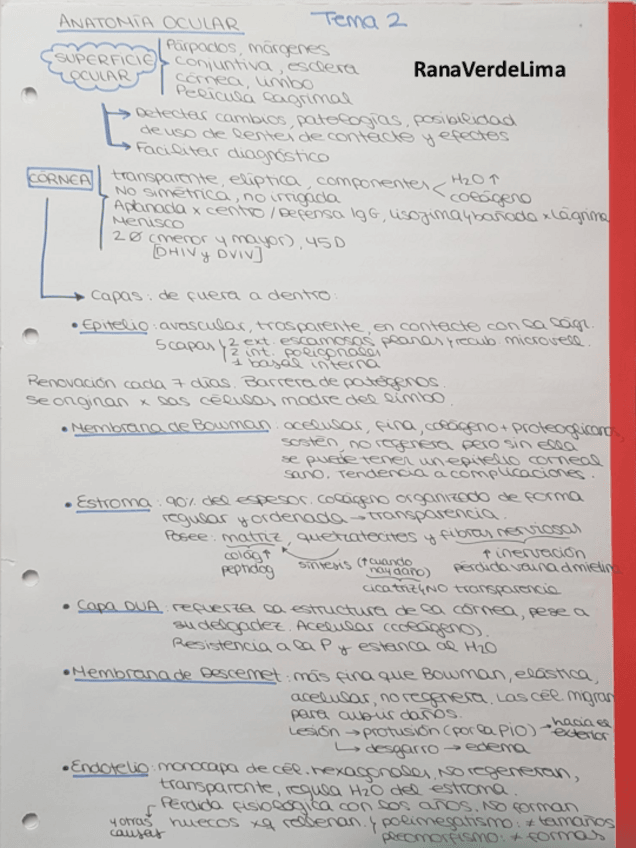 ANATOMÍA OCULAR Tema 2
RanaVerdeLima
SUPERFICIE OCULAR
Párpados, márgenes
conjuntiva, esclera
córnea, limbo
Película lagrimal
Detectar cambios, patologías, posibilidad
de uso de lentes de contacto y efectos
Facilitar diagnóstico
CÓRNEA
transparente, elíptica, componentes H2O ↑
colágeno
No simétrica, no irrigada
Aplanada x centro / Defensa IgG, lisozima y bañada x lágrima
Menisco
2 Ø (menor y mayor), 45D
[DHIV y DVIV]
Capas: de fuera a dentro:
• Epitelio: avascular, trasparente, en contacto con la lágr.
5 capas 2 ext. escamosas planas y recub. microvell.
2 int. poligonales
1 basal interna
Renovación cada 7 días. Barrera de patógenos.
Se originan x las células madre del limbo.
• Membrana de Bowman: acelular, fina, colágeno + proteoglicanos,
sostén, no regenera pero sin ella
se puede tener un epitelio corneal
sano. Tendencia a complicaciones.
• Estroma: 90% del espesor. Colágeno organizado de forma
regular y ordenada → transparencia.
Posee: matriz, queratocitos y fibras nerviosas
colág ↑
peptidog
síntesis (↑ cuando
hay daño)
↑ inervación
pérdida vaina d mielina
cicatriz y NO transparencia
• Capa DUA: refuerza la estructura de la córnea, pese a
su delgadez. Acelular (colágeno).
Resistencia a la P y estanca al H2O
• Membrana de Descemet: más fina que Bowman, elástica,
acelular, no regenera. Las cél migran
para cubrir daños.
Lesión → protusión (por la PIO) → hacia el
exterior
↳ desgarro → edema
• Endotelio: monocapa de cél. hexagonales, NO regeneran,
transparente, regula H2O del estroma.
Pérdida fisiológica con los años. No forman
y otras
causas
huecos xq rellenan. polimegatismo: ≠ tamaños
pleomorfismo: ≠ formas